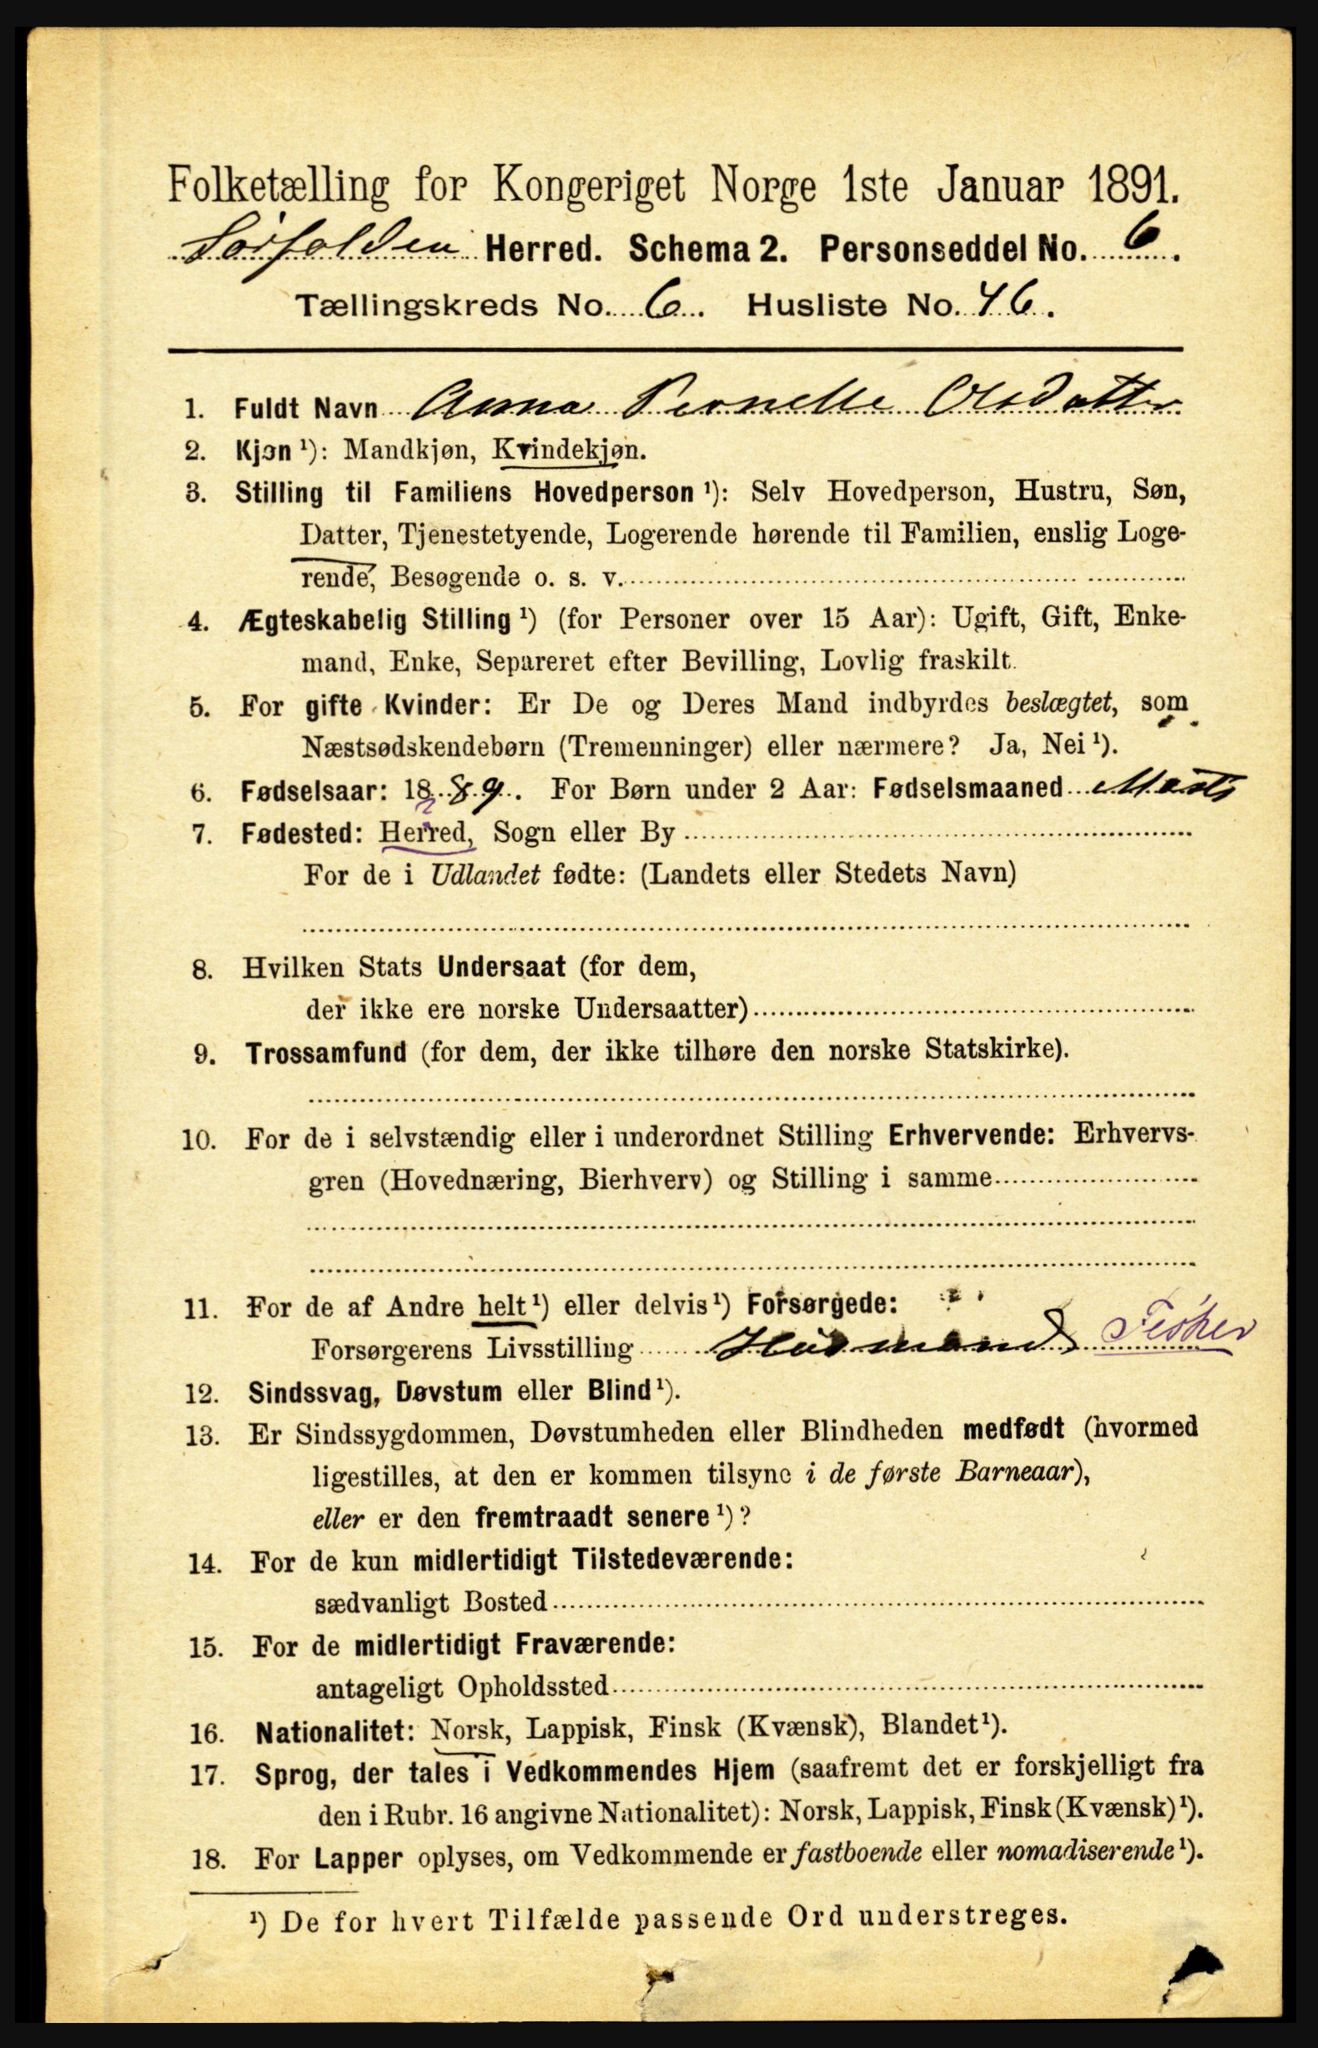 Folketælling for Kongeriget Norge 1ste Januar 1891.
Sørfolden Herred. Schema 2. Personseddel No. 6.
Tællingskreds No. 6. Husliste No. 46.
1. Fuldt Navn Anna Pernelle Olsdatter
2. Kjøn ¹): Mandkjøn, Kvindekjøn.
3. Stilling til Familiens Hovedperson ¹): Selv Hovedperson, Hustru, Søn,
Datter, Tjenestetyende, Logerende hørende til Familien, enslig Loge-
rende, Besøgende o. s. v.
4. Ægteskabelig Stilling ¹) (for Personer over 15 Aar): Ugift, Gift, Enke-
mand, Enke, Separeret efter Bevilling, Lovlig fraskilt.
5. For gifte Kvinder: Er De og Deres Mand indbyrdes beslægtet, som
Næstsødskendebørn (Tremenninger) eller nærmere? Ja, Nei ¹).
6. Fødselsaar: 1889. For Børn under 2 Aar: Fødselsmaaned Marts
7. Fødested: Herred, Sogn eller By
For de i Udlandet fødte: (Landets eller Stedets Navn)
8. Hvilken Stats Undersaat (for dem,
der ikke ere norske Undersaatter)
9. Trossamfund (for dem, der ikke tilhøre den norske Statskirke).
10. For de i selvstændig eller i underordnet Stilling Erhvervende: Erhvervs-
gren (Hovednæring, Bierhverv) og Stilling i samme
11. For de af Andre helt ¹) eller delvis ¹) Forsørgede:
Forsørgerens Livsstilling Husmand Fisker
12. Sindssvag, Døvstum eller Blind ¹).
13. Er Sindssygdommen, Døvstumheden eller Blindheden medfødt (hvormed
ligestilles, at den er kommen tilsyne i de første Barneaar),
eller er den fremtraadt senere ¹)?
14. For de kun midlertidigt Tilstedeværende:
sædvanligt Bosted
15. For de midlertidigt Fraværende:
antageligt Opholdssted
16. Nationalitet: Norsk, Lappisk, Finsk (Kvænsk), Blandet ¹).
17. Sprog, der tales i Vedkommendes Hjem (saafremt det er forskjelligt fra
den i Rubr. 16 angivne Nationalitet): Norsk, Lappisk, Finsk (Kvænsk) ¹).
18. For Lapper oplyses, om Vedkommende er fastboende eller nomadiserende ¹).
¹) De for hvert Tilfælde passende Ord understreges.